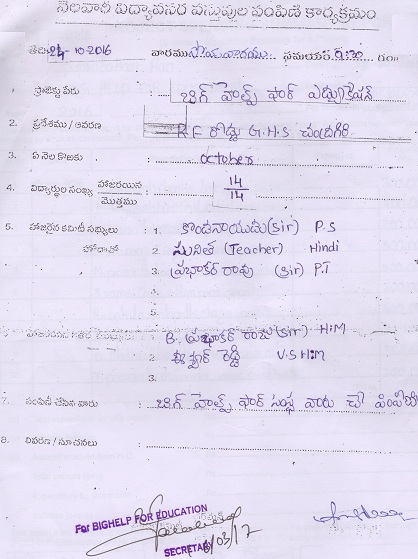 నెలవారీ విద్యావసర వస్తువుల పంపిణీ కార్యక్రమం
తేది: 24-10-2016 వారము సోమవారము.. సమయం 9:30 గం॥
1. ప్రాజెక్టు పేరు : బిగ్ హెల్ప్ ఫార్ ఎడ్యుకేషన్
2. ప్రదేశము / వివరణ : R F రోడ్డు G.H.S చంద్రగిరి
3. ఏ నెల కొఱకు : october
4. విద్యార్థుల సంఖ్య హాజరయిన / మొత్తము : 14/14
5. హాజరైన కమిటీ సభ్యులు : 1. కొండనాయుడు (sir) P.S
హోదాతో 2. సునీత (Teacher) Hindi
3. ప్రభాకర్ రావు (sir) P.T
4.
5.
1. B. ప్రభాకర్ రాజు (sir) H.M
2. ఈశ్వర్ రెడ్డి V.S H.M
3.
7. పంపిణీ చేసిన వారు : బిగ్ హెల్ప్ ఫార్ సంస్థ వారు చే
8. వివరణ / సూచనలు :
For BIGHELP FOR EDUCATION
SECRETARY
/03/17